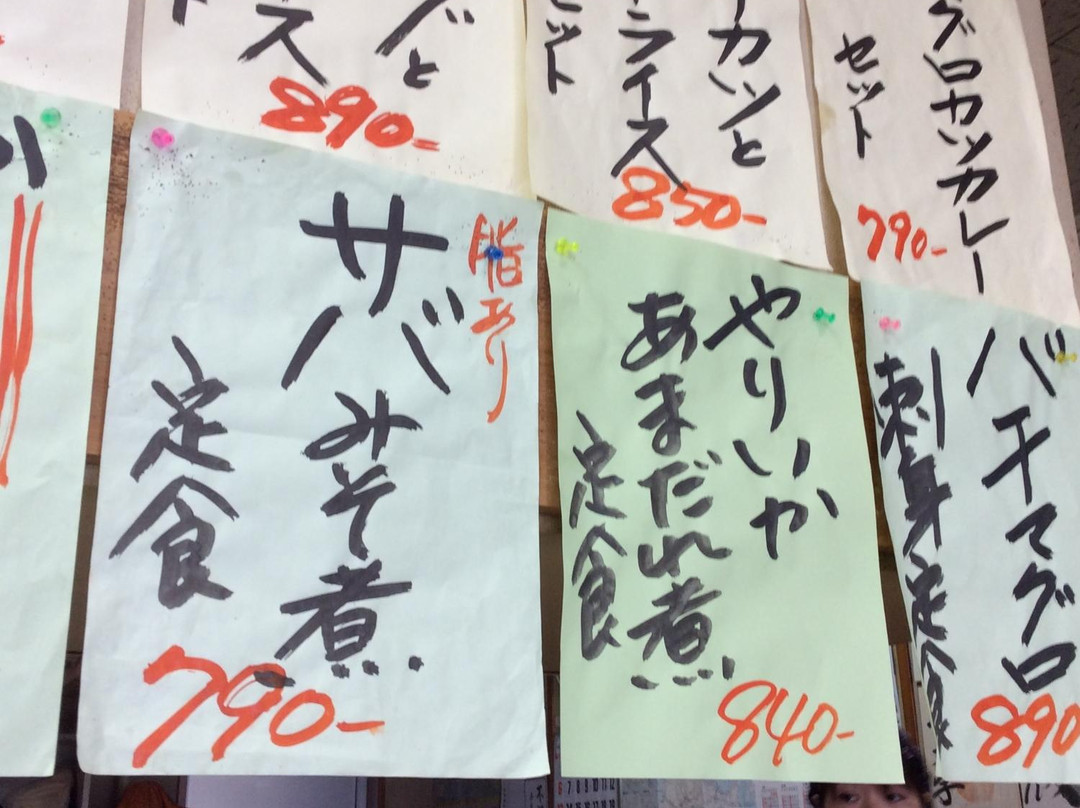 グロカツカレー
セット
790-
カツと
ライス
セット
850-
と
ス
890-
バチマグロ
刺身定食
890
やりいか
あまだれ煮
定食
840-
脂あり
サバみそ煮
定食
790-
か